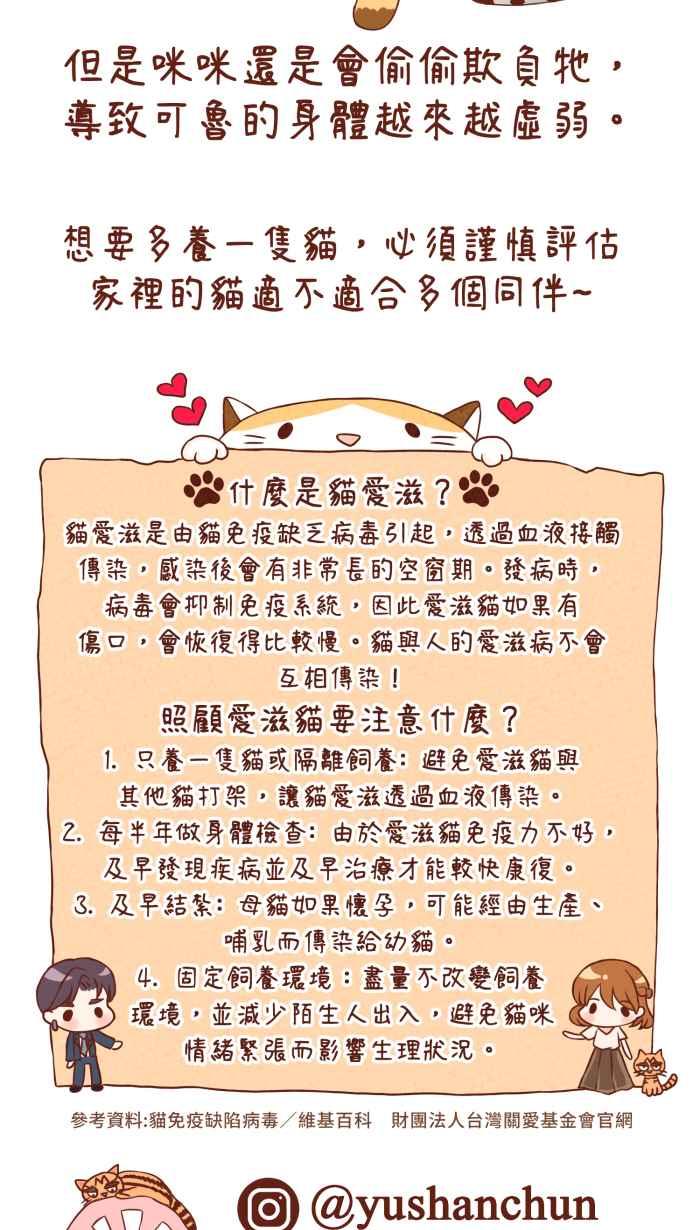 但是咪咪還是會偷偷欺負牠，
導致可魯的身體越來越虛弱。
想要多養一隻貓，必須謹慎評估
家裡的貓適不適合多個同伴~
什麼是貓愛滋？
貓愛滋是由貓免疫缺乏病毒引起，透過血液接觸
傳染，感染後會有非常長的空窗期。發病時，
病毒會抑制免疫系統，因此愛滋貓如果有
傷口，會恢復得比較慢。貓與人的愛滋病不會
互相傳染！
照顧愛滋貓要注意什麼？
1. 只養一隻貓或隔離飼養: 避免愛滋貓與
其他貓打架，讓貓愛滋透過血液傳染。
2. 每半年做身體檢查: 由於愛滋貓免疫力不好，
及早發現疾病並及早治療才能較快康復。
3. 及早結紮: 母貓如果懷孕，可能經由生產、
哺乳而傳染給幼貓。
4. 固定飼養環境：盡量不改變飼養
環境，並減少陌生人出入，避免貓咪
情緒緊張而影響生理狀況。
參考資料:貓免疫缺陷病毒／維基百科　財團法人台灣關愛基金會官網
@yushanchun